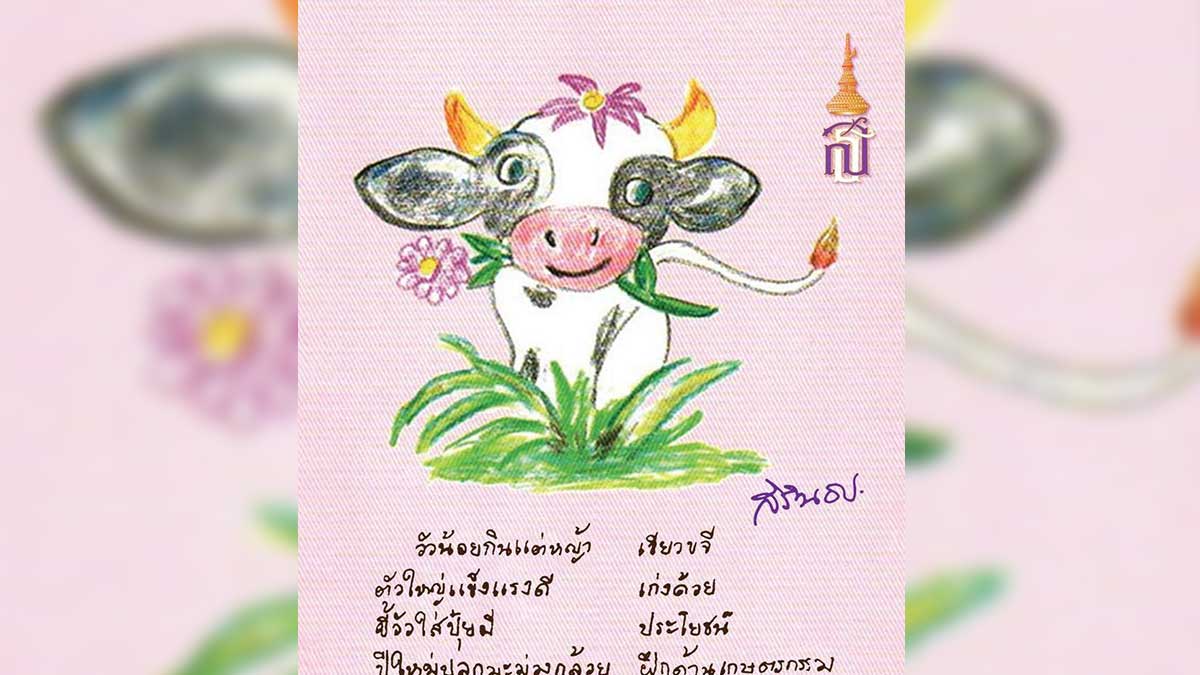 สิรินธร.
วัวน้อยกินแต่หญ้า เขียวขจี
ตัวใหญ่แข็งแรงดี เก่งด้วย
ขี้วัวใส่ปุ๋ยมี ประโยชน์
ปีใหม่ปลูกมะม่วงกล้วย ฝึกด้านเกษตรกรรม